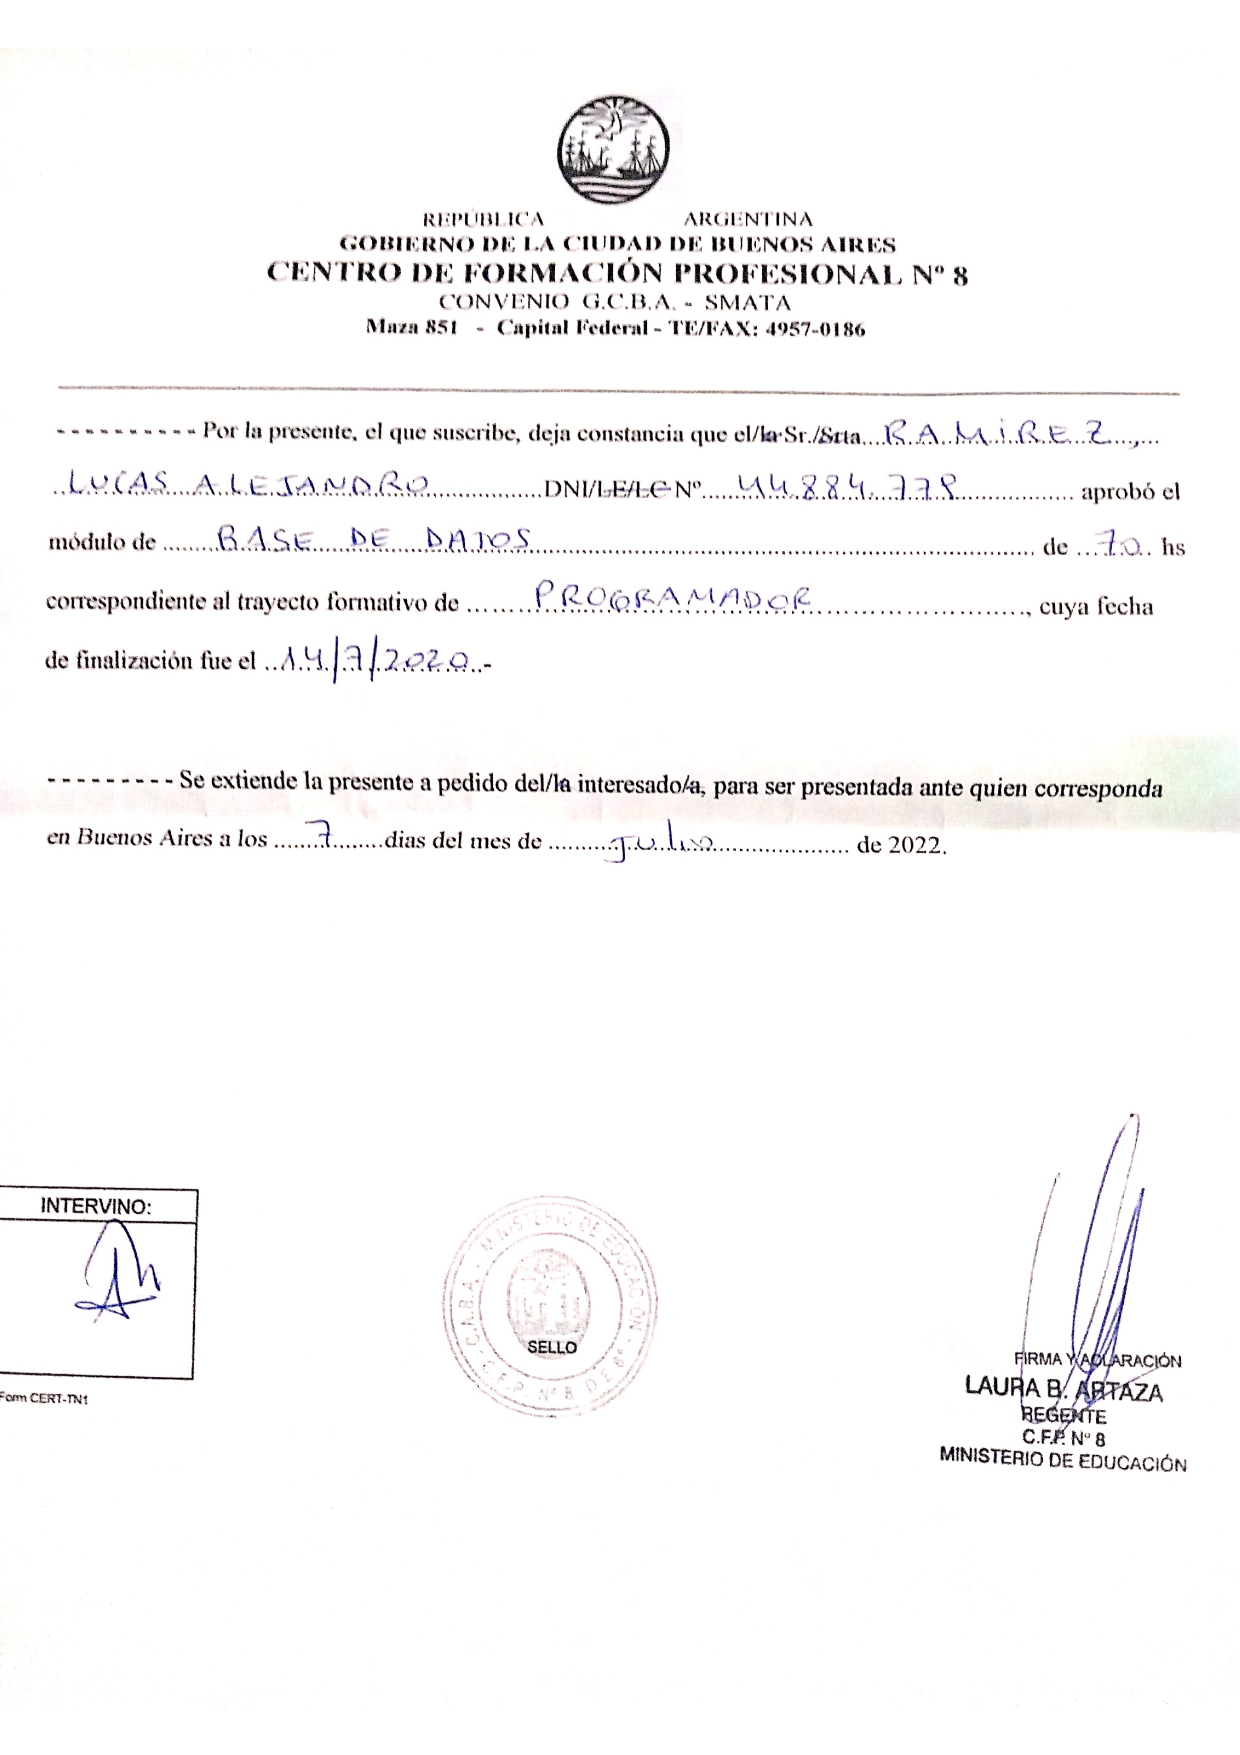 REPÚBLICA ARGENTINA
GOBIERNO DE LA CIUDAD DE BUENOS AIRES
CENTRO DE FORMACIÓN PROFESIONAL Nº 8
CONVENIO G.C.B.A. - SMATA
Maza 851 - Capital Federal - TE/FAX: 4957-0186
---------- Por la presente, el que suscribe, deja constancia que el/la Sr./Srta...RAMIREZ...,...
..LUCAS ALEJANDRO..................DNI/LE/LC Nº......44.884.778.................. aprobó el
módulo de ........BASE DE DATOS.................................................... de ...70.. hs
correspondiente al trayecto formativo de ........PROGRAMADOR..............................., cuya fecha
de finalización fue el ..14/7/2020..-
--------- Se extiende la presente a pedido del/la interesado/a, para ser presentada ante quien corresponda
en Buenos Aires a los ......7........dias del mes de ..........Julio..................... de 2022.
INTERVINO:
Form CERT-TN1
C.A.B.A. - MINISTERIO DE EDUCACIÓN - C.F.P. Nº 8 D.E 6º
SELLO
FIRMA Y ACLARACIÓN
LAURA B. ARTAZA
REGENTE
C.F.P. Nº 8
MINISTERIO DE EDUCACIÓN